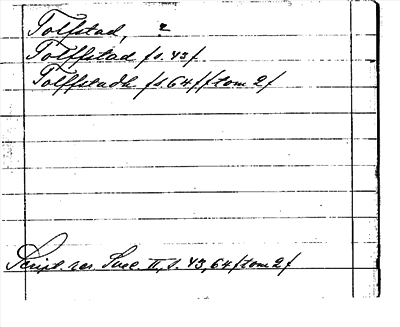 Tolfstad, ?
Tolffstad /s. 43/
Tolffstadh /s. 64 f/ /tom 2/
Script. rer. Suec. II, s. 43, 64 /tom 2/